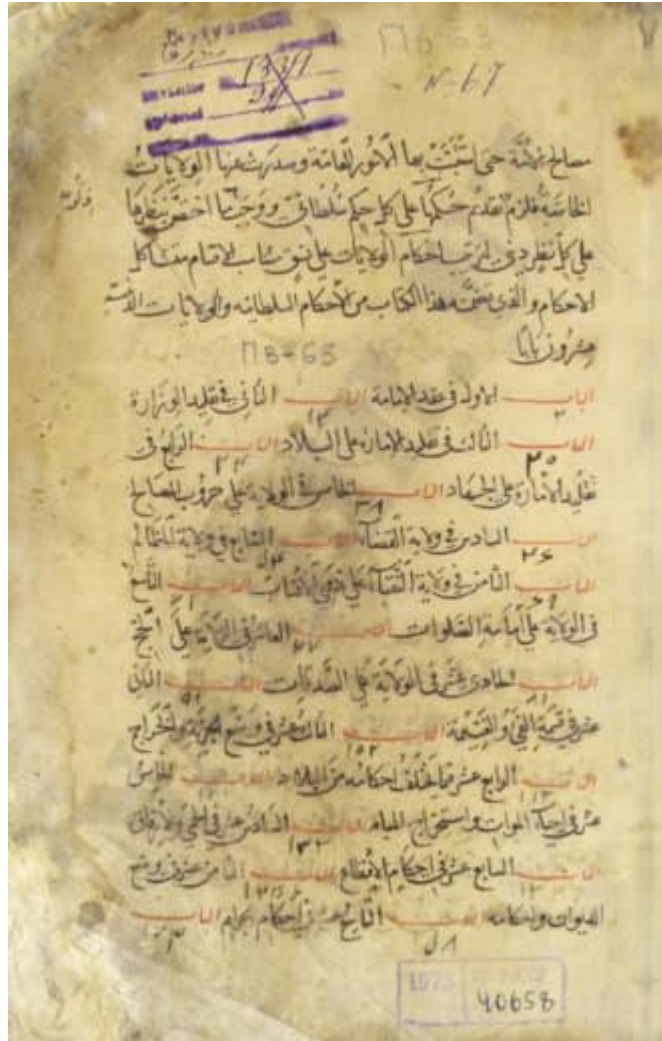 ПВ-63
N-67
1341
مصالح الامة حتى استثبتت بها الامور العامة وصدرت عنها الولايات
الخاصة فلزم تقديم حكمها على كل حكم سلطاني ووجب اختص بنظرها
على كل نظر ديني لترتيب احكام الولايات على نسق متناسب الاقسام متشاكل
الاحكام والذي تضمنه هذا الكتاب من الاحكام السلطانيه والولايات الدينيه
عشرون بابا
ПВ-63
الباب الاول في عقد الامامة الباب الثاني في تقليد الوزارة
الباب الثالث في تقليد الامارة على البلاد الباب الرابع في
تقليد الامارة على الجهاد الباب الخامس في الولاية على حروب المصالح
الباب السادس في ولاية القضاء الباب السابع في ولاية المظالم
الباب الثامن في ولاية النقابة على ذوي الانساب الباب التاسع
في الولاية على امامة الصلوات الباب العاشر في الولاية على الحج
الباب الحادي عشر في الولاية على الصدقات الباب الثاني
عشر في قسمة الفيء والغنيمة الباب الثالث عشر في وضع الجزية والخراج
الباب الرابع عشر فيما تختلف احكامه من البلاد الباب الخامس
عشر في احياء الموات واستخراج المياه الباب السادس عشر في الحمى والارفاق
الباب السابع عشر في احكام الاقطاع الباب الثامن عشر في وضع
الديوان واحكامه الباب التاسع عشر في احكام الجرايم الباب
1975
40658